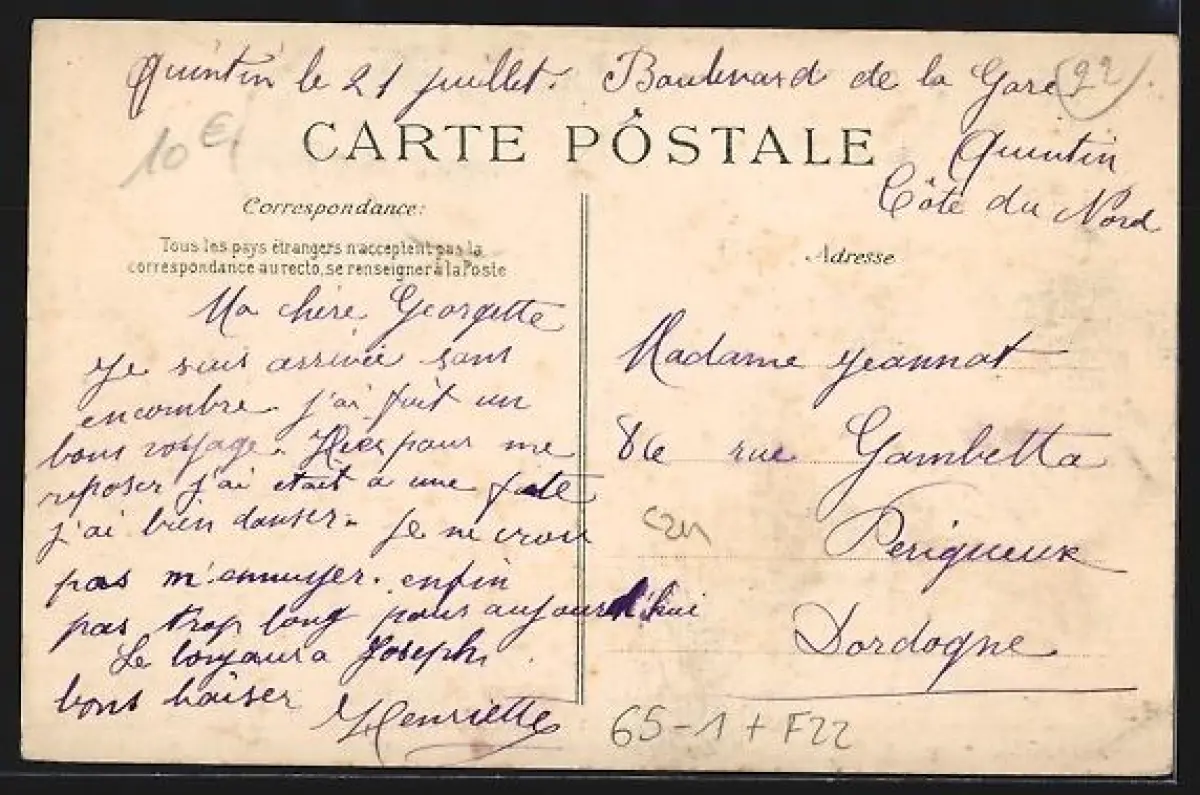 Quintin le 21 juillet. Boulevard de la Gare (22)
Quintin
Côte du Nord
10 €
CARTE POSTALE
Correspondance:
Tous les pays étrangers n'acceptent pas la
correspondance au recto, se renseigner à la Poste
Ma chère Georgette
Je suis arrivée sans
encombre. j'ai fait un
bons voyage. Hier pour me
reposer j'ai etait a une fete
j'ai bien danser. Je ne crois
pas m'ennuyer. enfin
pas trop long pour aujourd'hui
Joseph.
bons baiser
Henriette
Adresse
Madame Jeannot
rue Gambetta
Perigueux
Dordogne
65-1 + F22